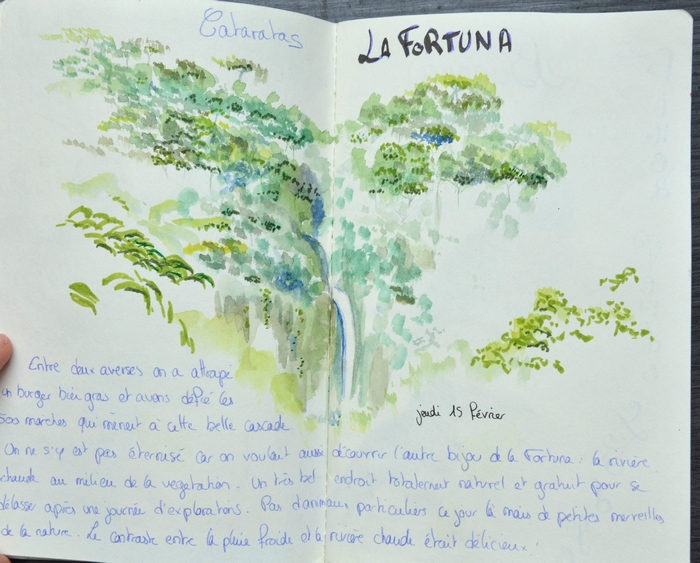 Cataratas LA FORTUNA
Entre deux averses on a attrapé
un burger bien gras et avons défié les
500 marches qui mènent à cette belle cascade
jeudi 15 Février
On ne s'y est pas éternisé car on voulait aussi découvrir l'autre bijou de la Fortuna : la rivière
chaude au milieu de la vegetation. Un très bel endroit totalement naturel et gratuit pour se
délasser après une journée d'explorations. Pas d'animaux particuliers ce jour là mais de petites merveilles
de la nature. Le contraste entre la pluie froide et la rivière chaude était délicieux.